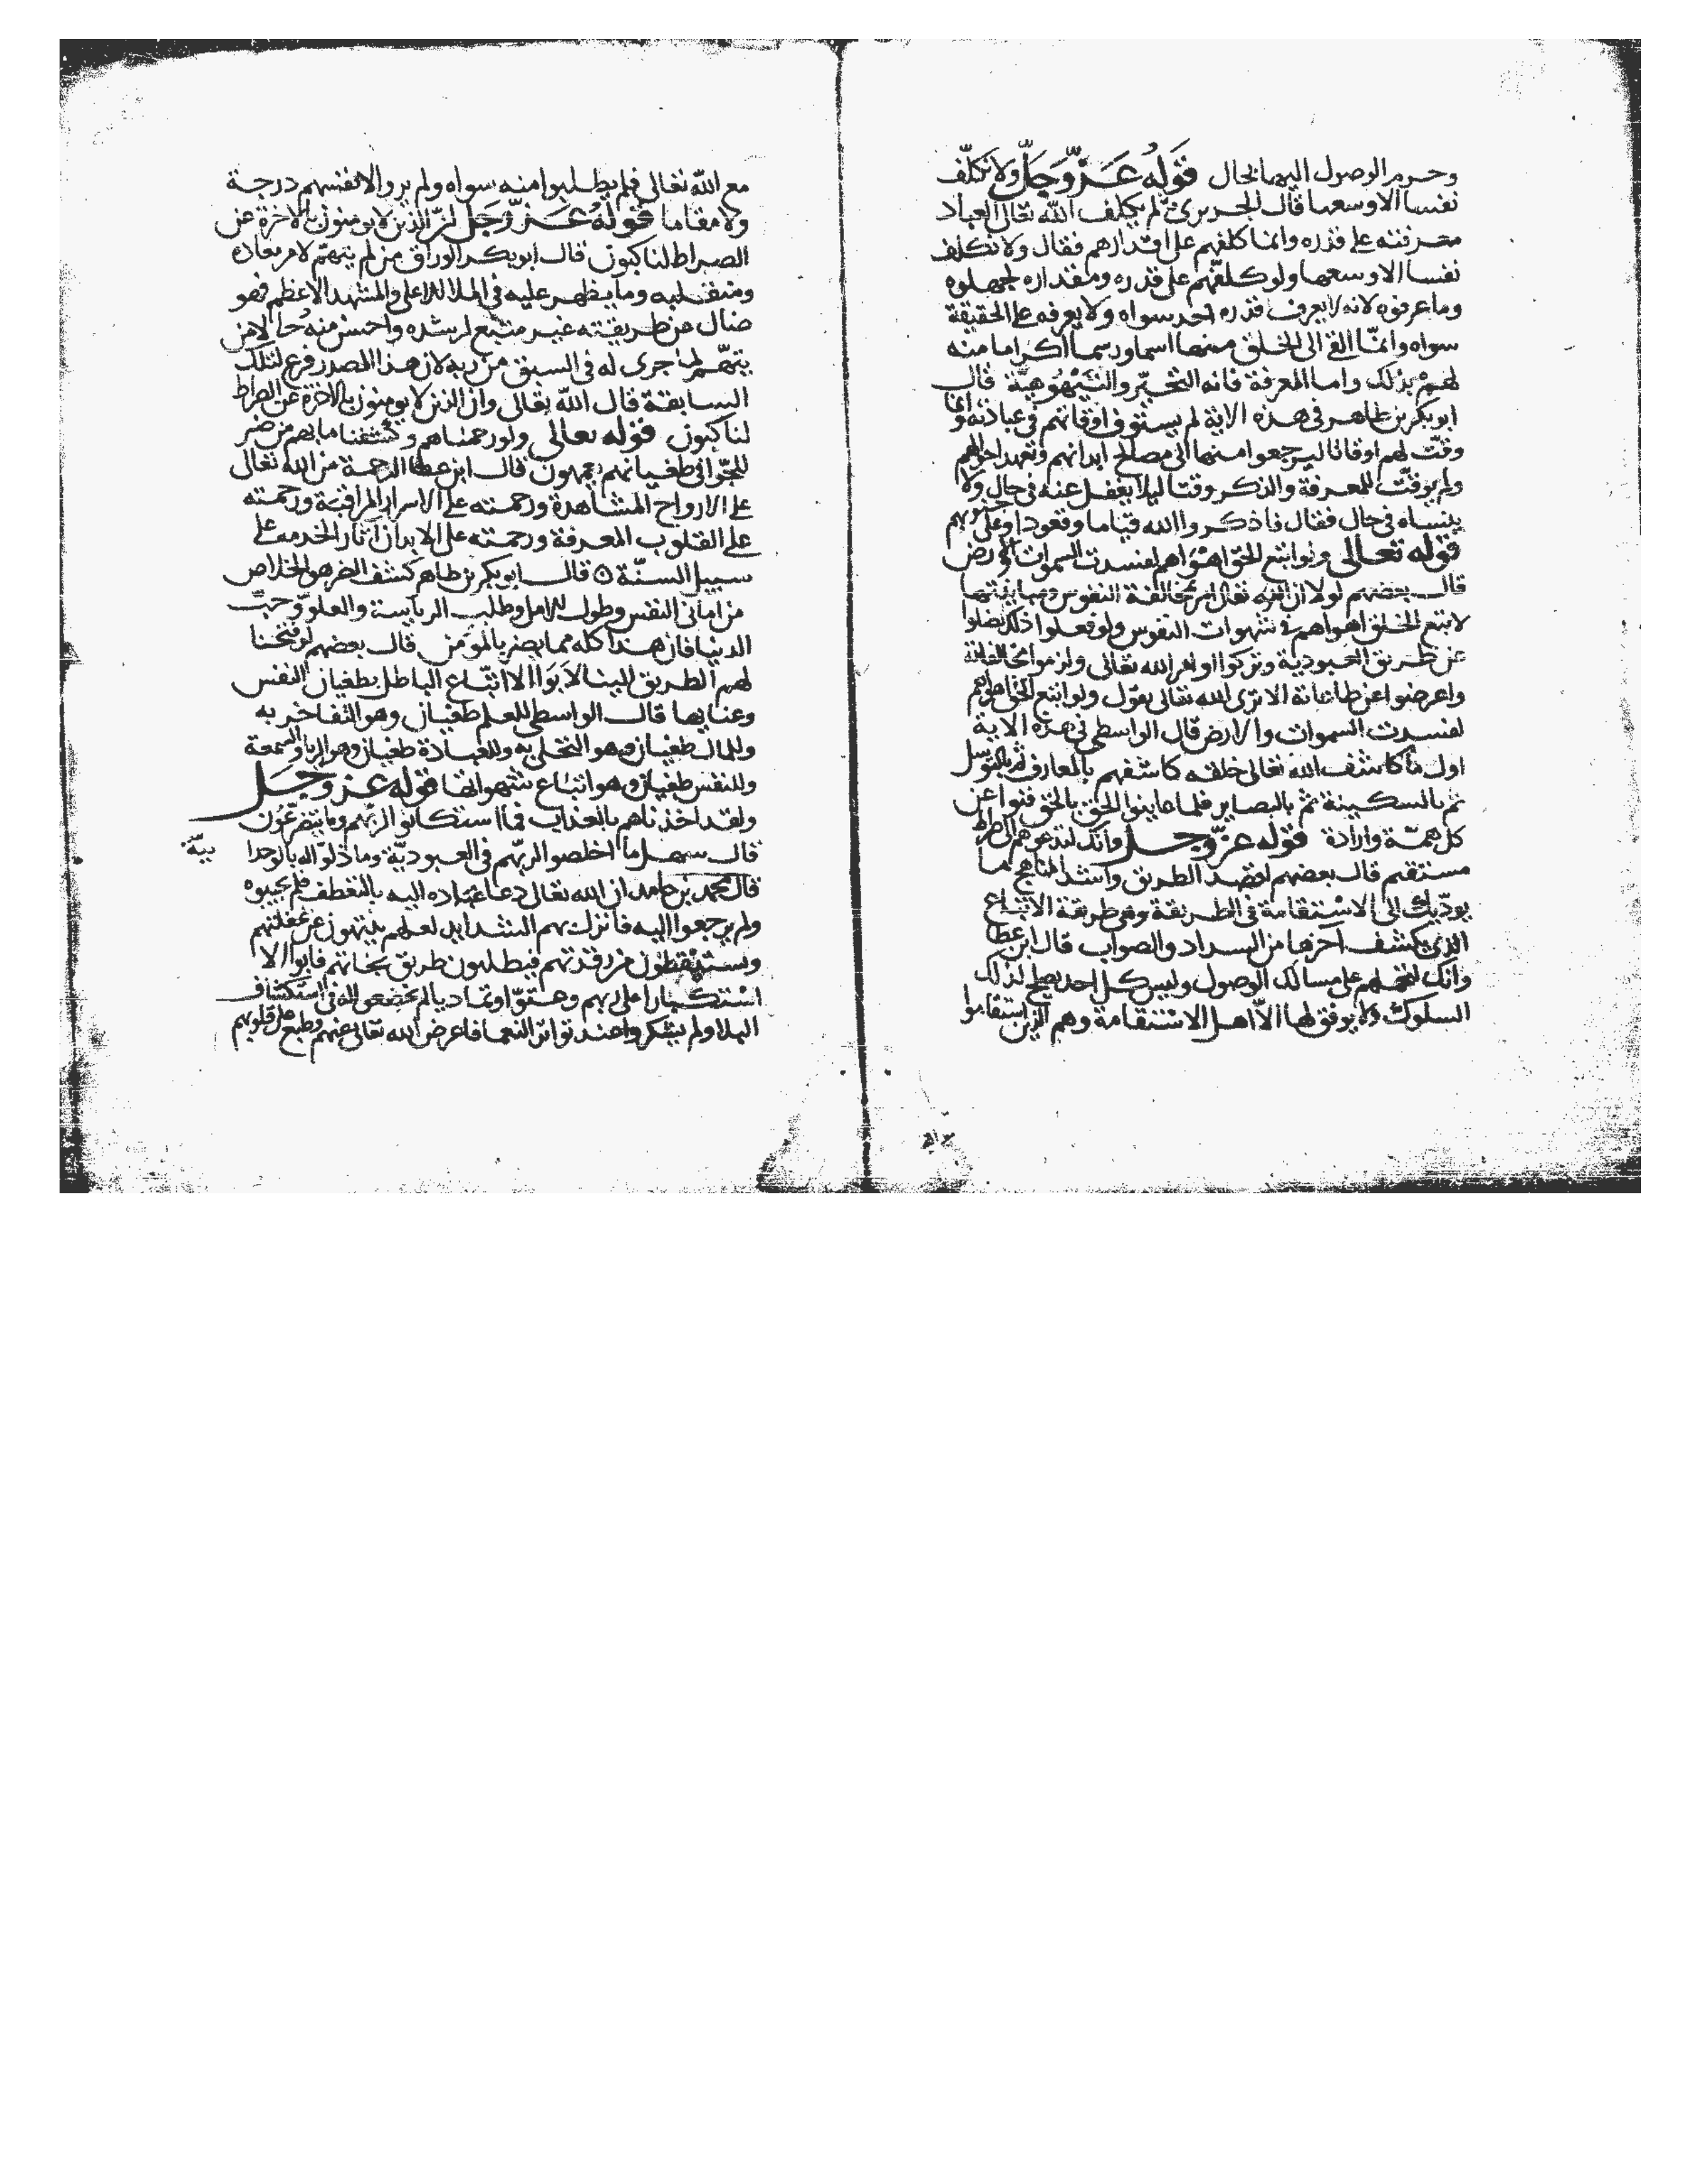 وحرم الوصول اليها بحال قوله عز وجل ولا نكلف
نفسا الا وسعها قال الجريري لم يكلف الله تعالى العباد
معرفته على قدره وانما كلفهم على اقدارهم فقال ولا نكلف
نفسا الا وسعها ولو كلفهم على قدره ومقداره لجهلوه
وما عرفوه لانه لا يعرف قدره احد سواه ولا يعرفه على الحقيقة
سواه وانما القى الى الخلق منها اسما ورسما اكراما منه
لهم بذلك واما المعرفة فانه التحير والتيهوهية قال
ابو بكر بن طاهر في هذه الاية لم يستوف اوقاتهم في عبادته وانما
وقت لهم اوقاتا ليرجعوا منها الى مصالح ابدانهم وتعهد احوالهم
ولم يوقت للمعرفة والذكر وقتا ليلا يغفل عنه في حال ولا
ينساه في حال فقال فاذكروا الله قياما وقعودا وعلى جنوبهم
قوله تعالى ولو اتبع الحق اهواهم لفسدت السموات والارض
قال بعضهم لولا ان الله تعالى امر بمخالفة النفوس ومباينتها
لاتبع الخلق اهواهم في شهوات النفوس ولو فعلوا ذلك لضلوا
عن طريق العبودية وتركوا اوامر الله تعالى ولزموا مخالفاته
واعرضوا عن طاعاته الا ترى الله تعالى يقول ولو اتبع الحق اهواهم
لفسدت السموات والارض قال الواسطي في هذه الاية
اول ما كاشف الله تعالى خلقه كاشفهم بالمعارف ثم بالتوسل
ثم بالسكينة ثم بالبصاير فلما عاينوا الحق بالحق فنوا عن
كل همة وارادة قوله عز وجل وانك لتدعوهم الى صراط
مستقيم قال بعضهم لقصد الطريق واشد المناهج لما
يوديك الى الاستقامة في الطريقة وهي طريقة الاتباع
الذي يكشف اخرها من السداد والصواب قال ابن عطا
وانك لتحملهم على مسالك الوصول وليس كل احد يصلح لذلك
السلوك ولا يوفق لها الا اهل الاستقامة وهم الذين استقاموا
مع الله تعالى فلم يطلبوا منه سواه ولم يروا لانفسهم درجة
ولا مقاما قوله عز وجل ان الذين لا يومنون بالاخرة عن
الصراط لناكبون قال ابو بكر الوراق من لم يتهم لامر معاده
ومنقلبه وما يظهر عليه في الملا الاعلى والمشهد الاعظم فهو
ضال عن طريقته غير متبع لرشده واحسن منه حالا من
يتهم لما جرى له في السبق من ربه لان هذا المصدر فرع لتلك
السابقة قال الله تعالى وان الذين لا يومنون بالاخرة عن الصراط
لناكبون قوله تعالى ولو رحمناهم وكشفنا ما بهم من ضر
للجوا في طغيانهم يعمهون قال ابن عطا الرحمة من الله تعالى
على الارواح المشاهدة ورحمته على الاسرار المراقبة ورحمته
على القلوب المعرفة ورحمته على الابدان اثار الخدمه على
سبيل السنة قال ابو بكر بن طاهر كشف الضر هو الخلاص
من اماني النفس وطول الامل وطلب الرياسة والعلو وحب
الدنيا فان هذا كله مما يضر بالمومن قال بعضهم لو فتحنا
لهم الطريق الينا لابوا الا اتباع الباطل بطغيان النفس
وعتابها قال الواسطي للعلم طغيان وهو التفاخر به
وللمال طغيان وهو التخلي به وللعبادة طغيان وهو الريا والسمعة
وللنفس طغيان وهو اتباع شهواتها قوله عز وجل
ولقد اخذناهم بالعذاب فما استكانوا لربهم وما يتضرعون
قال سهل ما اخلصوا لربهم في العبودية وما ذلوا له بالوحدا
نية
قال محمد بن حامد ان الله تعالى دعا عباده اليه بالتعطف فلم يجيبوه
ولم يرجعوا اليه فانزل بهم الشدايد لعلهم ينتهون عن غفلتهم
ويستيقظون من رقدتهم فيطلبون طريق نجاتهم فابوا الا
استكبارا على ربهم وعتوا وتماديا لم يخضعوا له في استكشاف
البلا ولم يشكروا عند تواتر النعما فاعرض الله تعالى عنهم وطبع على قلوبهم